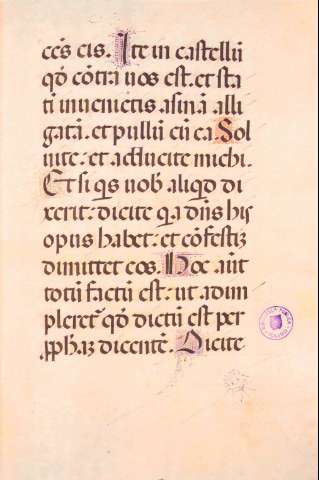 cẽs eis. Ite in castellũ
qđ cõtra uos est. et sta
tĩ inuenietis asinã alli
gatã. et pullũ cũ ea. Sol
uite: et adducite michi.
Et si q̃s uob̃ aliqđ di
xerit: dicite q̃a dñs his
opus habet: et cõfestiȝ
dimittet eos. Hoc aũt
totũ factũ est: ut adim
pleret᷑ qđ dictũ est per
ꝓph̃aȝ dicentẽ. Dicite